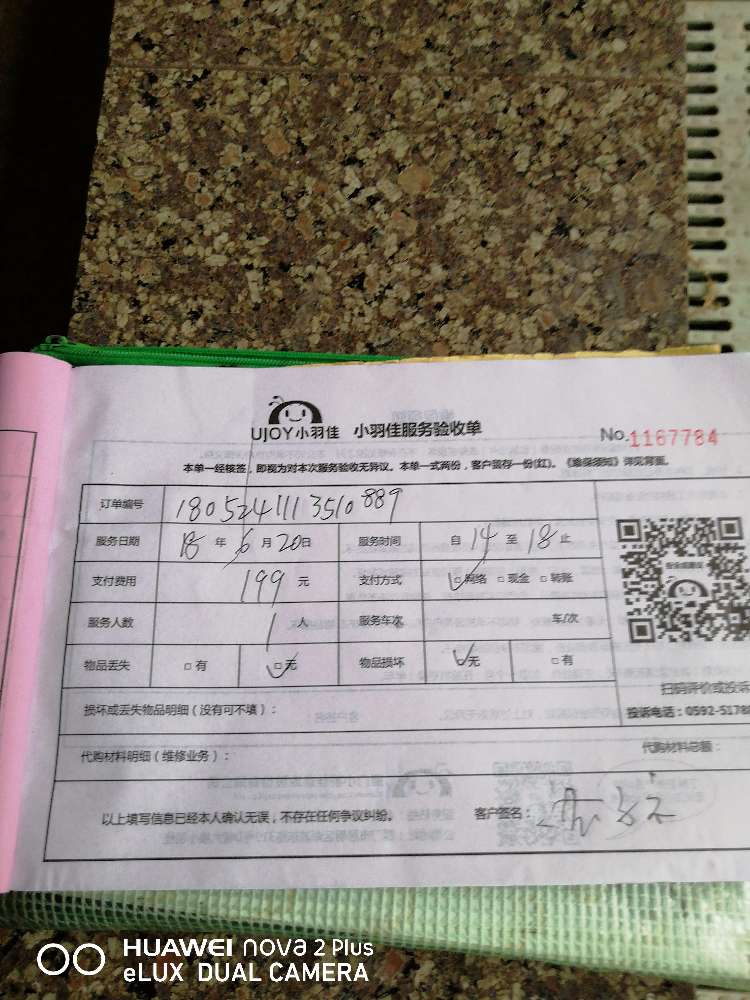 UJOY小羽佳 小羽佳服务验收单 No.1167784
本单一经核签，即视为对本次服务验收无异议。本单一式两份，客户留存一份(红)。《确保须知》详见背面。
订单编号 1805241113510889
服务日期 18 年 6 月 20 日 服务时间 自 14 至 18 止
支付费用 199 元 支付方式 ☑网络 □现金 □转账
服务人数 1 人 服务车次 车/次
物品丢失 □有 ☑无 物品损坏 ☑无 □有
扫码评价或投诉
损坏或丢失物品明细（没有可不填）： 投诉电话：0592-5178
代购材料明细（维修业务）： 代购材料总额：
以上填写信息已经本人确认无误，不存在任何争议纠纷。 客户签名：
HUAWEI nova 2 Plus
eLUX DUAL CAMERA